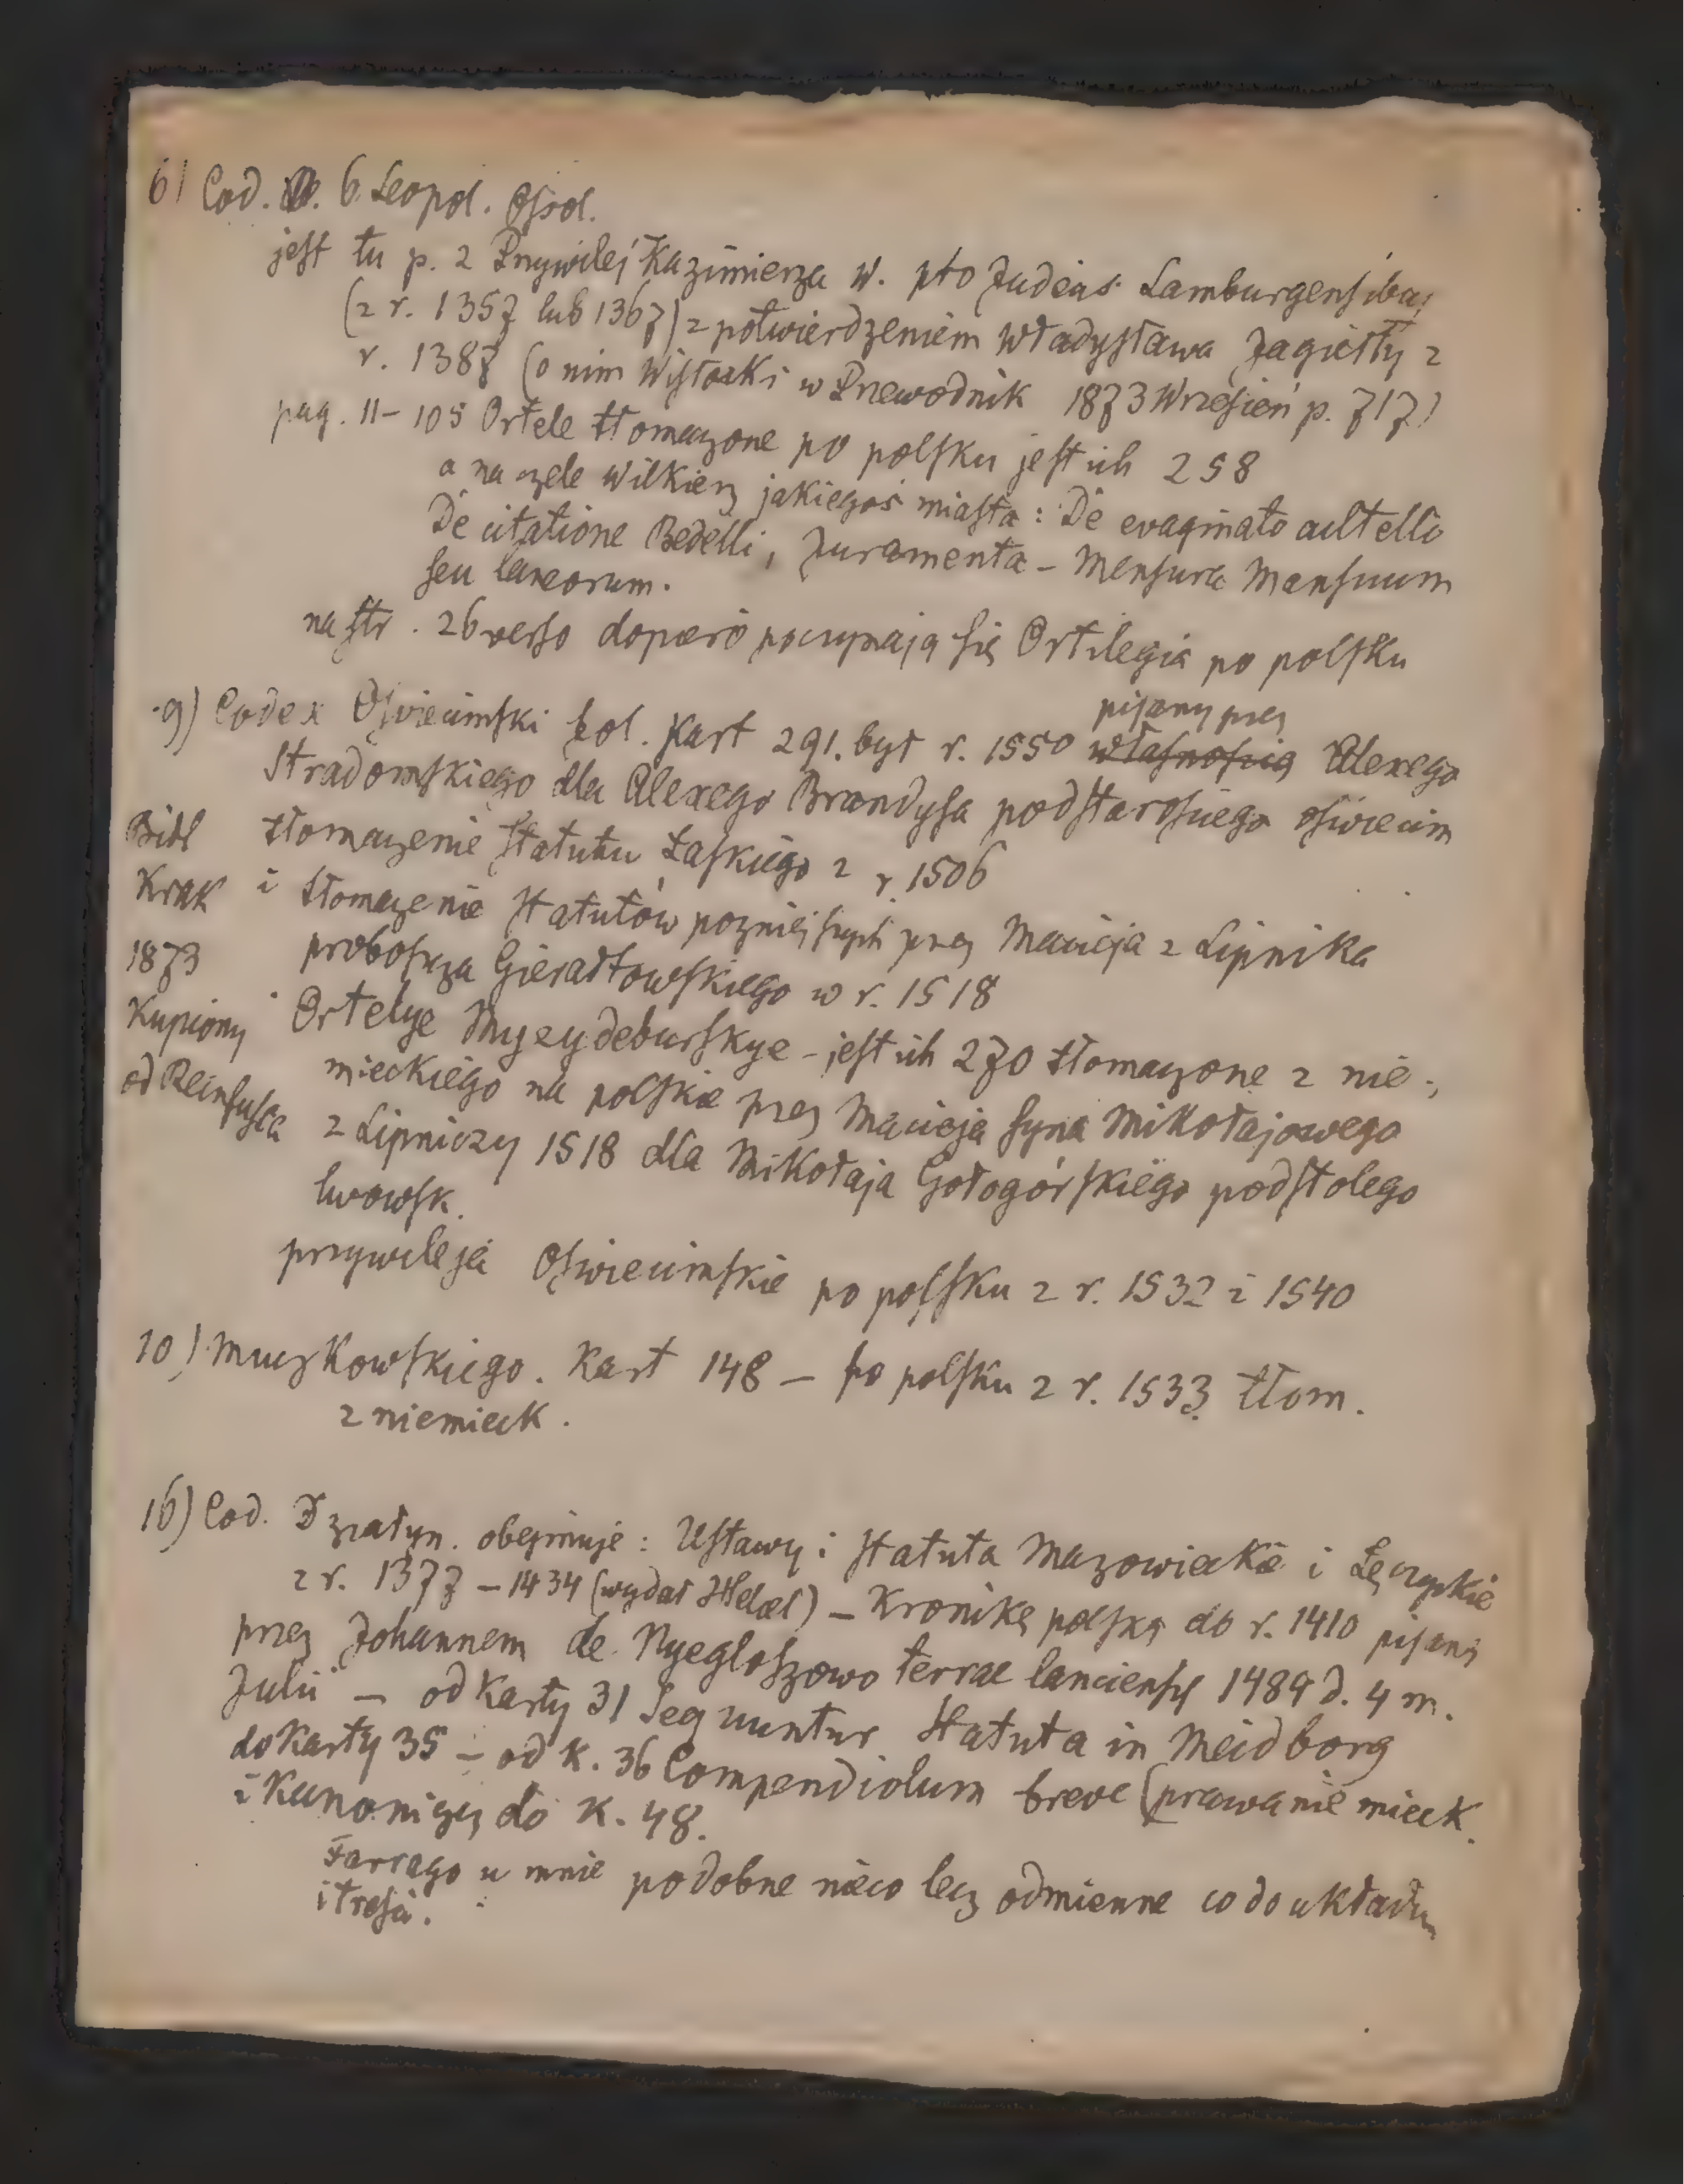 6) Cod. b. Leopol. Ossol.
jest tu p. 2 Przywilej Kazimierza W. pto Judeas Lamburgensibus
(z r. 1357 lub 1367) z potwierdzeniem Władysława Jagiełły z
r. 1387 (o nim Wisłocki w Przewodnik 1873 Wrzesień p. 717)
pag. 11-105 Ortele tłomaczone po polsku jest ich 258
a na czele Wilkierz jakiegoś miasta: De evaginato cultello
De citatione Bedelli, Juramenta - Mensura Mansuum
seu laneorum.
na str. 26 verso dopiero poczynają się Ortilegia po polsku
pisany przez
9) Codex Oświecimski fol. kart 291. był r. 1550 własnością Alexego
Stradomskiego dla Alexego Brandysa podstarosciego oświecim
Bibl tłomaczenie Statutu Łaskiego z r. 1506
Krak i tłomaczenie Statutów poźniejszych przez Macieja z Lipnika
1873 proboszcza Gierałtowskiego w r. 1518
Kupiony Ortelye Mayzydeburskye - jest ich 270 tłomaczone z nie-
od Reinfussa mieckiego na polskie przez Macieja syna Mikołajowego
z Lipniczy 1518 dla Mikołaja Gołogórskiego podstolego
lwowsk.
przywileja Oswiecimskie po polsku z r. 1532 i 1540
10) Muczkowskiego. Kart 148 - po polsku z r. 1533 tłom.
z niemieck.
16) Cod. Działyn. obejmuje: Ustawy i Statuta Mazowieckie i Łęczyckie
z r. 1377 - 1434 (wydał Helcel) - Kronikę polską do r. 1410 pisaną
przez Johannem de Nyegloszowo terrae lanciensis 1489 d. 4 m.
Julii - od Karty 31 Sequuntur Statuta in Meidborg
do Karty 35 - od K. 36 Compendiolum breve (prawa niemieck.
i Kanonigu do K. 48.
Farrago u mnie podobne nieco lecz odmienne co do układu
i treści.